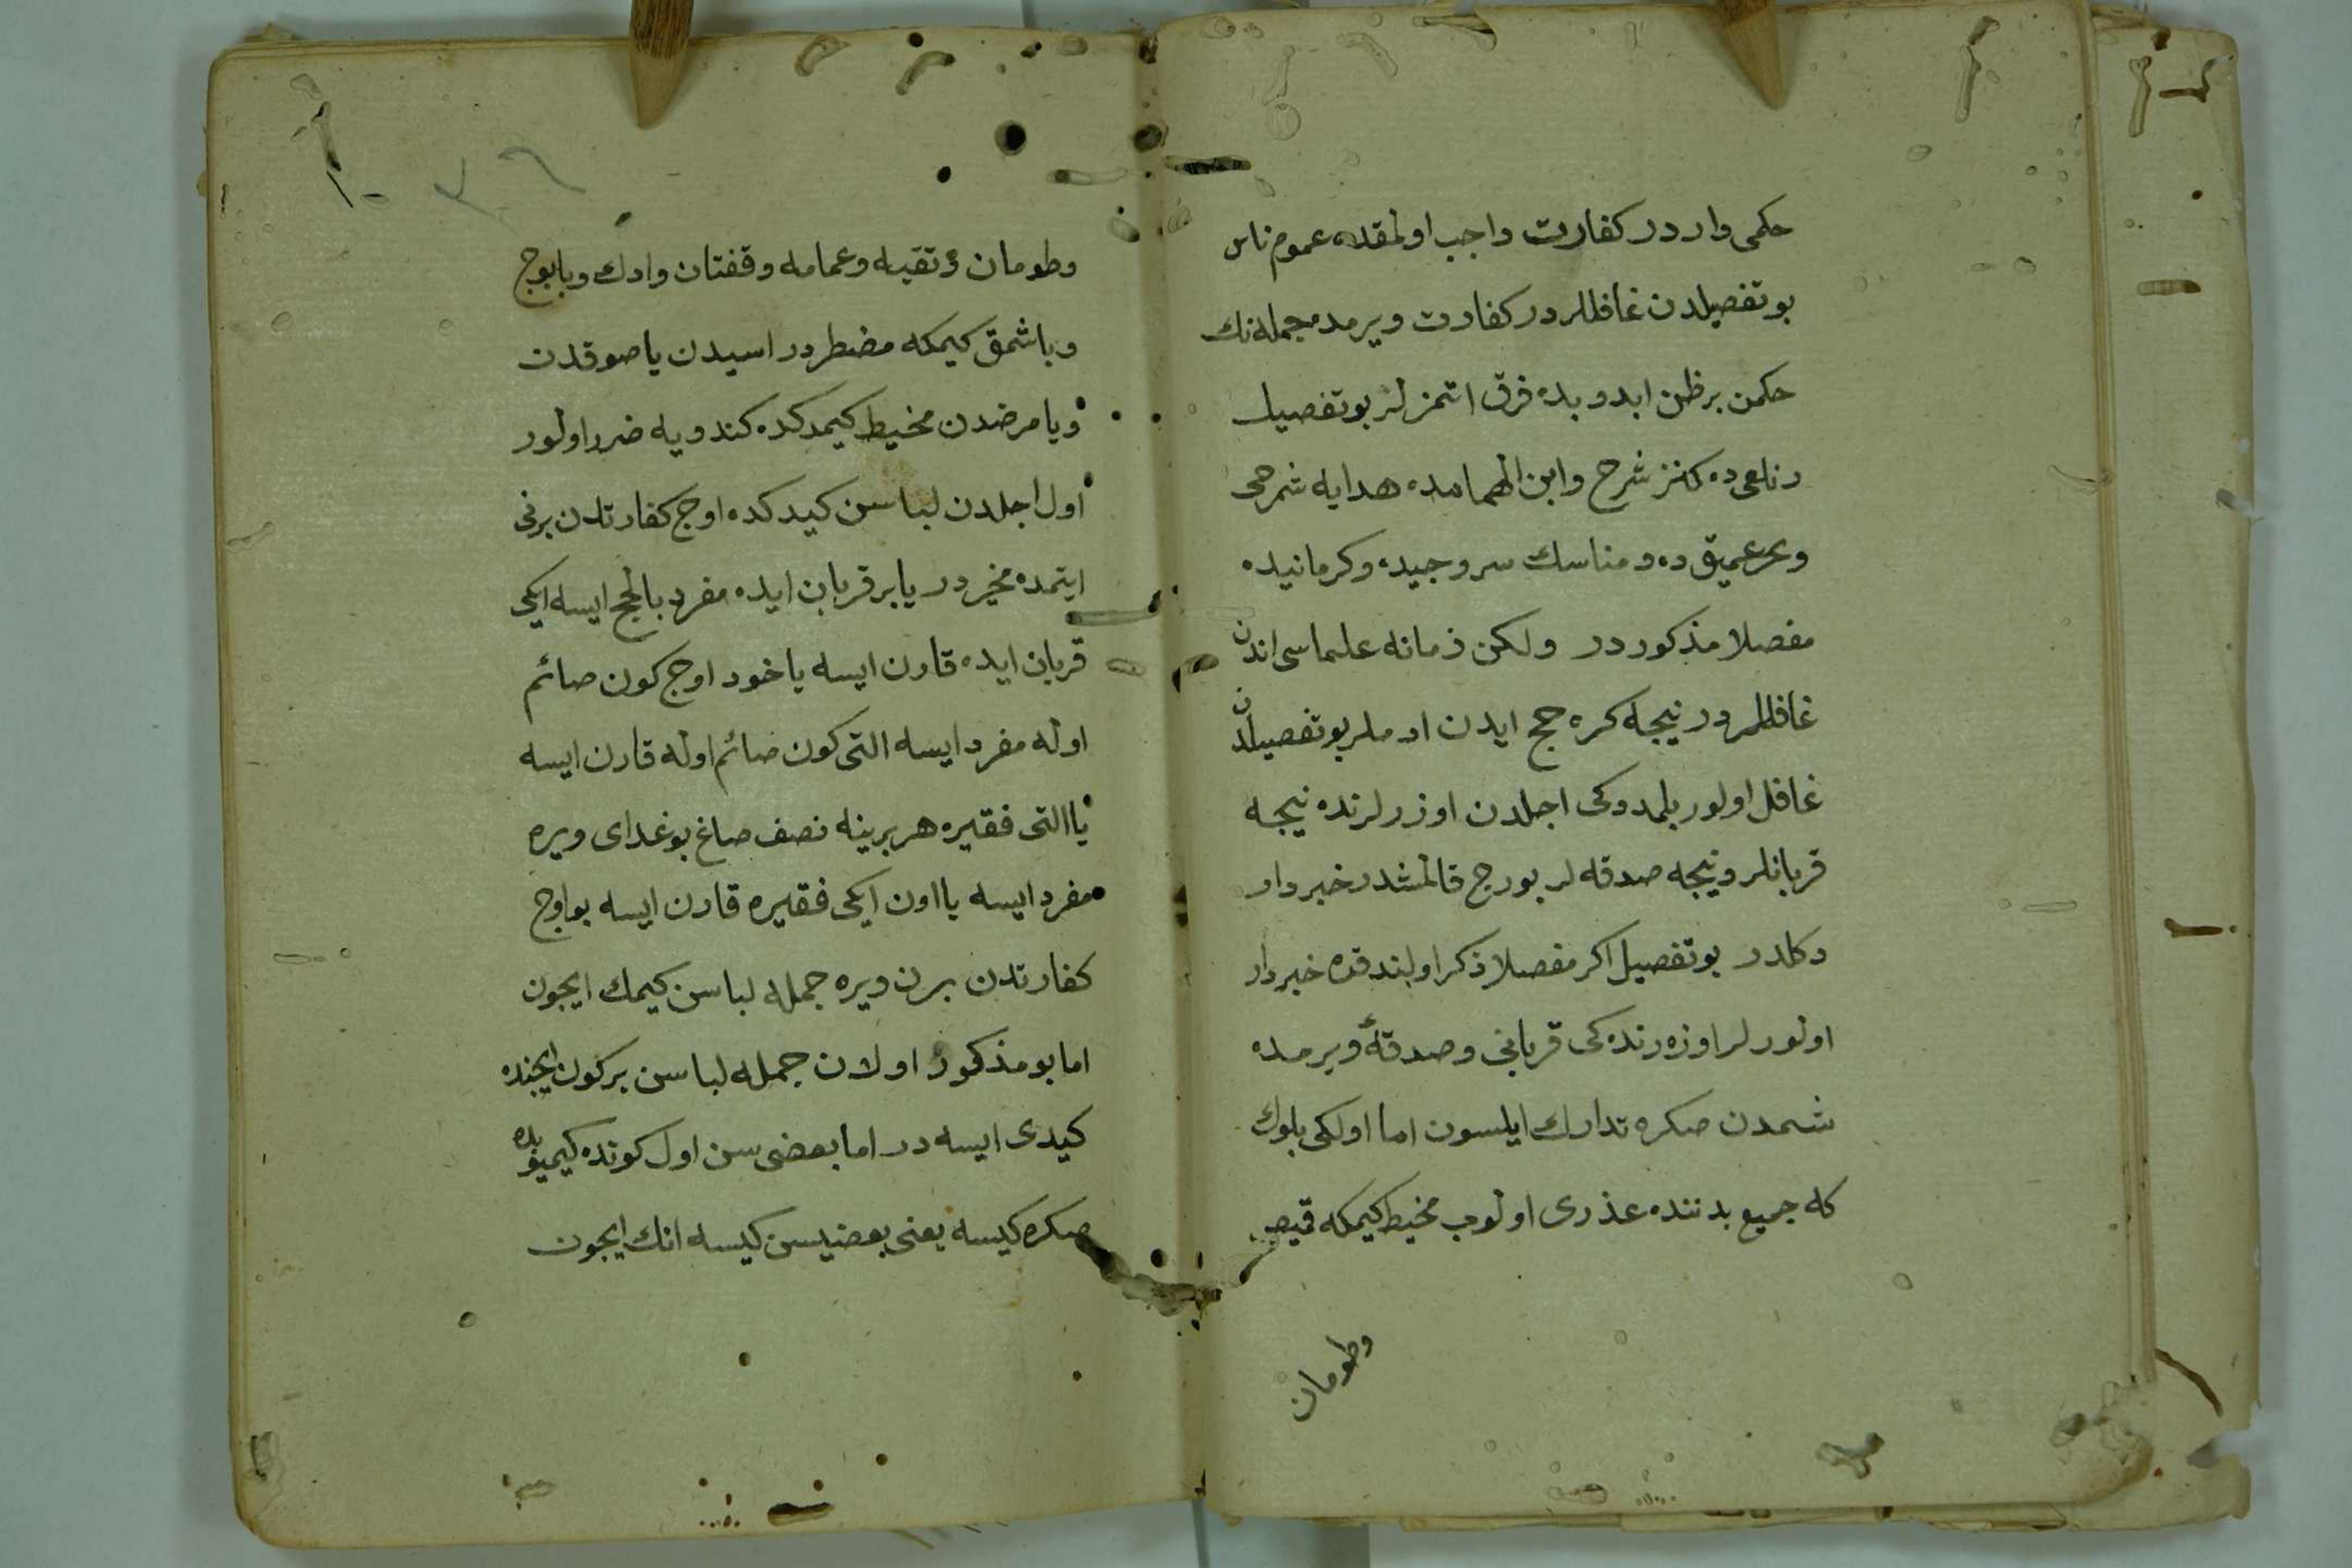 حكمی وار در كفارت واجب اولمقده عموم ناس
بو تفصیلدن غافللر در كفارت ویرمده جمله نك
حكمن بر ظن ایدو بده فرق اتمزلر بو تفصیل
ده كنز شرح وابن الهمامده هدایه شرحی
وبحر عمیق ده و مناسك سروجیده وكرمانیده
مفصلا مذكور در ولكن زمانه علماسی اندن
غافللر در نیجه كره حج ایدن ادملر بو تفصیلدن
غافل اولور بلمدوكی اجلدن اوزرلرنده نیجه
قربانلر ونیجه صدقه لر بورج قالمشدر خبردار
دكلدر بو تفصیل اكر مفصلا ذكر اولندقده خبردار
اولورلر اوزه رنده كی قربانی وصدقهٔ ویرمده
شمدن صكره تدارك ایلسون اما اولكی بلوك
كه جمیع بدننده عذری اولوب مخیط كیمكه قمیص
وطومان
١٠
٣٩
وطومان وتقیه وعمامه وقفتان وادك وبابوج
وباشمق كیمكه مضطر در اسیدن یا صوقدن
ویا مرضدن مخیط كیمدكده كندویه ضرر اولور
اول اجلدن لباسن كیدكده اوج كفارتدن برنی
ایتمده مخیر در یا بر قربان ایده مفرد بالحج ایسه ایكی
قربان ایده قارن ایسه یاخود اوج كون صائم
اوله مفرد ایسه التی كون صائم اوله قارن ایسه
یا التی فقیره هر برینه نصف صاغ بوغدای ویره
مفرد ایسه یا اون ایكی فقیره قارن ایسه بو اوج
كفارتدن برن ویره جمله لباسن كیمك ایجون
اما بو مذكور اولان جمله لباسن بر كون ایجنده
كیدی ایسه در اما بعضی سن اول كونده كیمیوبده
صكره كیسه یعنی بعضیسن كیسه انك ایجون